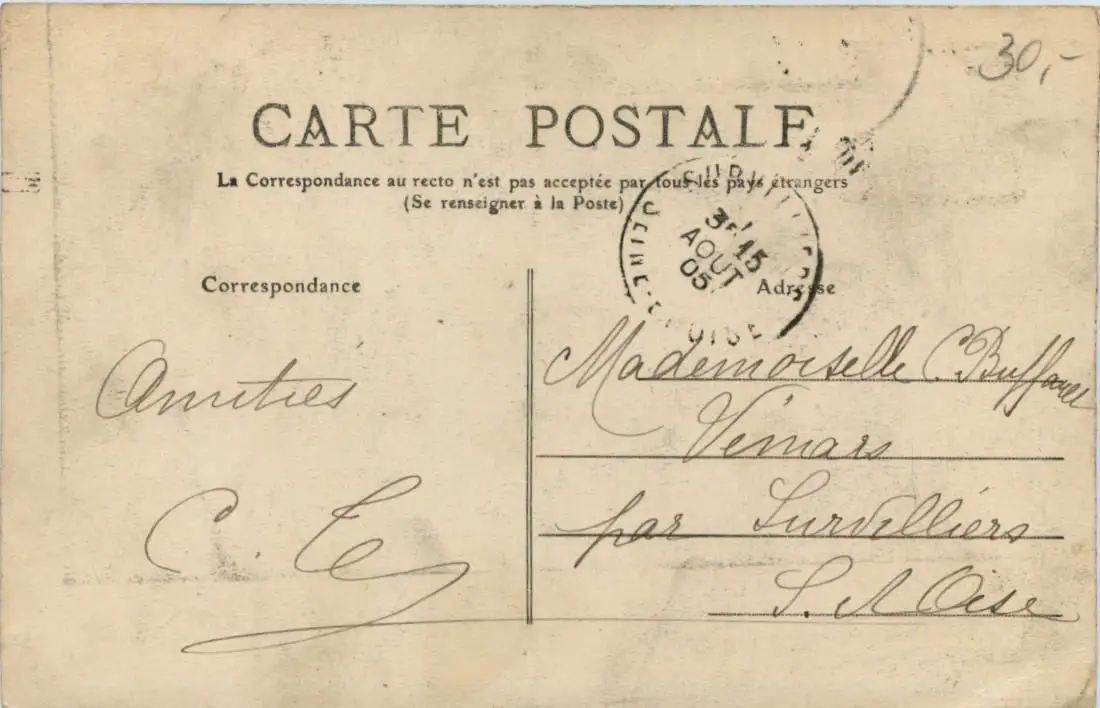 30,-
CARTE POSTALE
La Correspondance au recto n'est pas acceptée par tous les pays étrangers
(Se renseigner à la Poste)
SURVILLIERS
3E/15
AOUT
05
OISE
Correspondance
Adresse
Amitiés
C.
Mademoiselle C. Buffard
Vémars
par Survilliers
S. & Oise